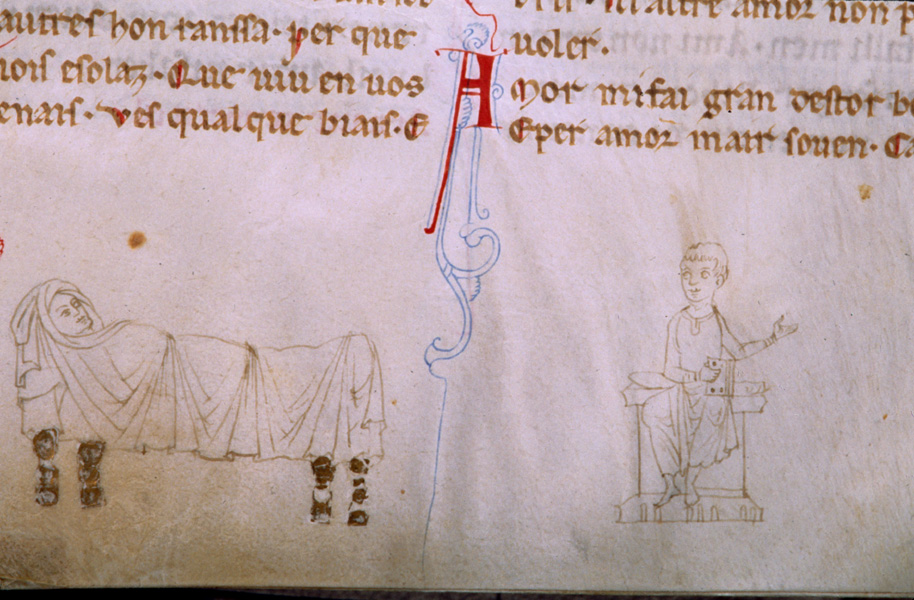 autres hon ranssa· per que
nois esolaz· Que uiu en uos
enais· ves qual que biais· E
altre amor non
uoler·
AMor mi fai gran destor
E per amor mair souen·